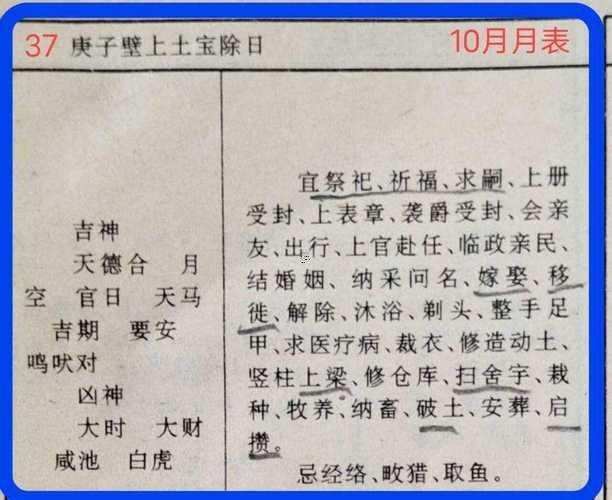 37 庚子壁上土宝除日
10月月表
吉神
天德合 月
空 官日 天马
吉期 要安
鸣吠对
凶神
大时 大财
咸池 白虎
宜祭祀、祈福、求嗣、上册
受封、上表章、袭爵受封、会亲
友、出行、上官赴任、临政亲民、
结婚姻、纳采问名、嫁娶、移
徙、解除、沐浴、剃头、整手足
甲、求医疗病、裁衣、修造动土、
竖柱上梁、修仓库、扫舍宇、栽
种、牧养、纳畜、破土、安葬、启
攒。
忌经络、畋猎、取鱼。